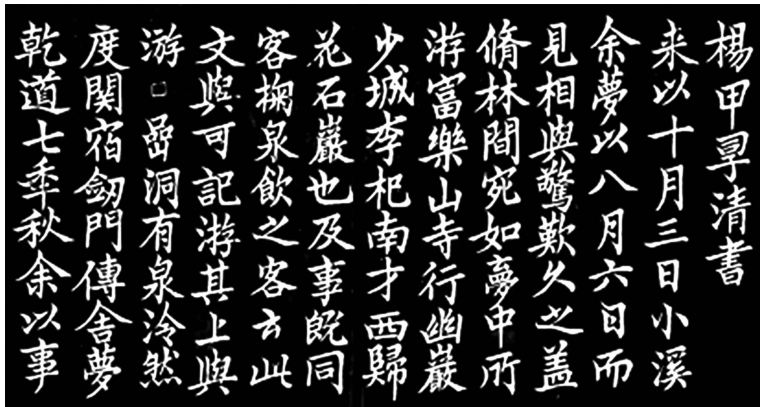 乾道七秊秋余以事
度関宿劔門傳舍夢
游□嵒洞有泉泠然
文與可記游其上與
客掬泉飲之客云此
花石巖也及事既同
少城李杞南才西歸
游富樂山寺行幽巖
脩林間宛如夢中所
見相與驚歎久之盖
余夢以八月六日而
来以十月三日小溪
楊甲清書